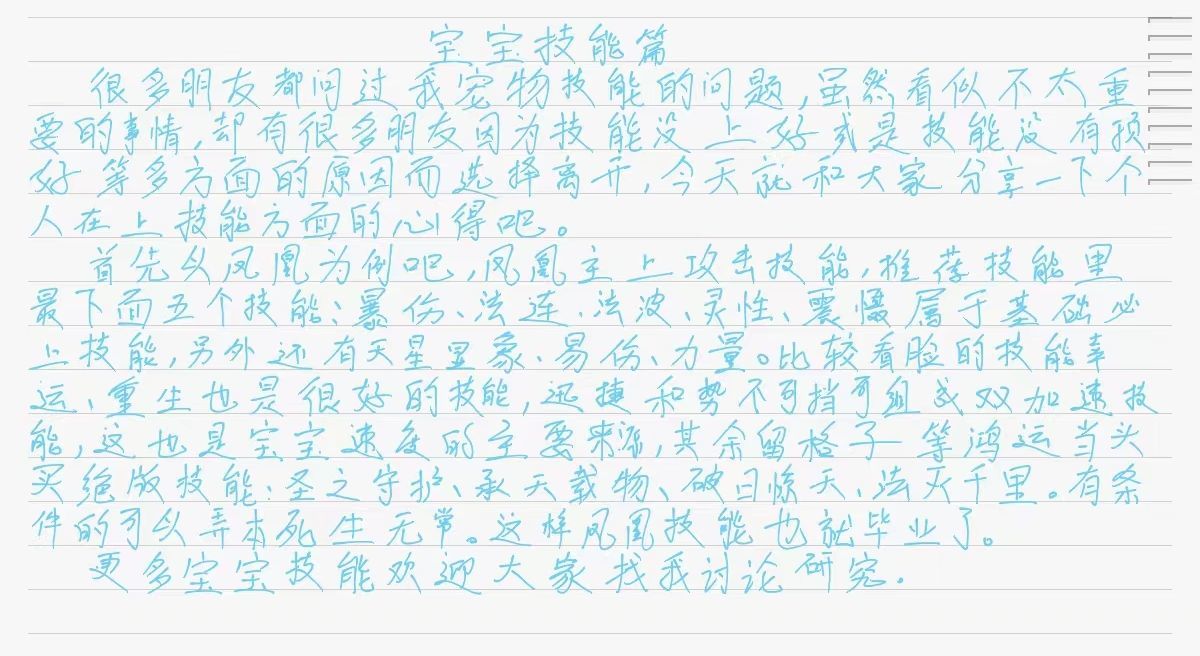 宝宝技能篇
很多朋友都问过我宠物技能的问题,虽然看似不太重
要的事情,却有很多朋友因为技能没上好或是技能没有顶
好等多方面的原因而选择离开,今天就和大家分享一下个
人在上技能方面的心得吧。
首先以凤凰为例吧,凤凰主上攻击技能,推荐技能里
最下面五个技能:暴伤、法连、法波、灵性、震慑属于基础必
上技能,另外还有天星显象、易伤、力量。比较看脸的技能幸
运、重生也是很好的技能,迅捷和势不可挡可组成双加速技
能,这也是宝宝速度的主要来源,其余留格子等鸿运当头
买绝版技能:圣之守护、承天载物、破日惊天、法灭千里。有条
件的可以弄本死生无常。这样凤凰技能也就毕业了。
更多宝宝技能欢迎大家找我讨论研究.